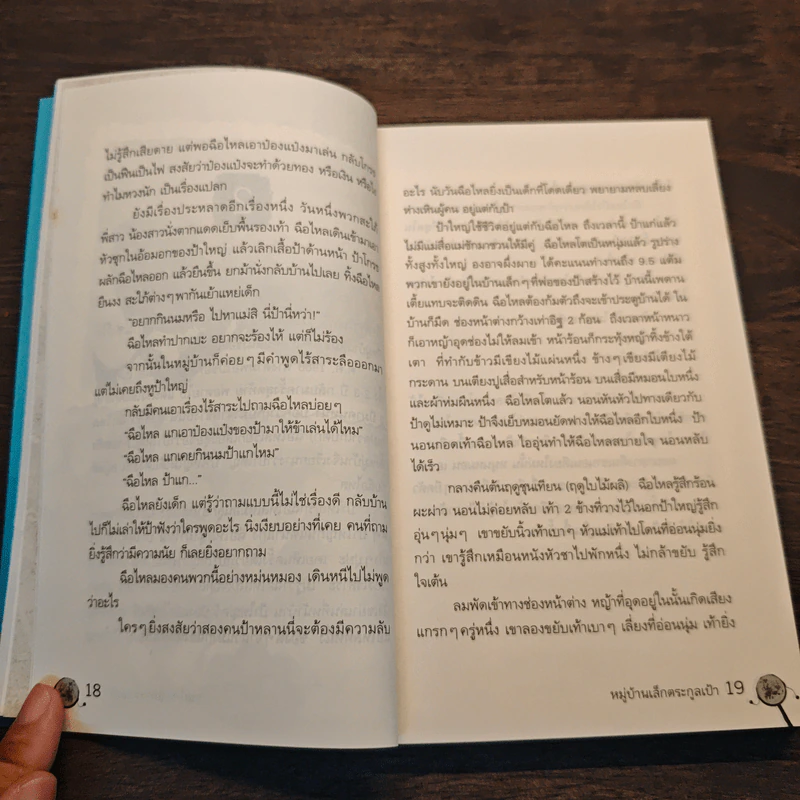 ไม่รู้สึกเสียดาย แต่พอฉือไหลเอาป๋องแป๋งมาเล่น กลับโกรธ
เป็นฟืนเป็นไฟ สงสัยว่าป๋องแป๋งจะทำด้วยทอง หรือเงิน หรือไง
ทำไมหวงนัก เป็นเรื่องแปลก
ยังมีเรื่องประหลาดอีกเรื่องหนึ่ง วันหนึ่งพวกสะใภ้
พี่สาว น้องสาวนั่งตากแดดเย็บพื้นรองเท้า ฉือไหลเดินเข้ามาเอา
หัวซุกในอ้อมอกของป้าใหญ่ แล้วเลิกเสื้อป้าด้านหน้า ป้าโกรธ
ผลักฉือไหลออก แล้วยืนขึ้น ยกม้านั่งกลับบ้านไปเลย ทิ้งฉือไหล
ยืนงง สะใภ้ต่างๆ พากันเย้าแหย่เด็ก
“อยากกินนมหรือ ไปหาแม่สิ นี่ป้านี่หว่า!”
ฉือไหลทำปากเบะ อยากจะร้องไห้ แต่ก็ไม่ร้อง
จากนั้นในหมู่บ้านก็ค่อยๆ มีคำพูดไร้สาระลือออกมา
แต่ไม่เคยถึงหูป้าใหญ่
กลับมีคนเอาเรื่องไร้สาระไปถามฉือไหลบ่อยๆ
“ฉือไหล แกเอาป๋องแป๋งของป้ามาให้ข้าเล่นได้ไหม”
“ฉือไหล แกเคยกินนมป้าแกไหม”
“ฉือไหล ป้าแก...”
ฉือไหลยังเด็ก แต่รู้ว่าถามแบบนี้ไม่ใช่เรื่องดี กลับบ้าน
ไปก็ไม่เล่าให้ป้าฟังว่าใครพูดอะไร นิ่งเงียบอย่างที่เคย คนที่ถาม
ยิ่งรู้สึกว่ามีความนัย ก็เลยยิ่งอยากถาม
ฉือไหลมองคนพวกนี้อย่างหม่นหมอง เดินหนีไปไม่พูด
ว่าอะไร
ใครๆ ยิ่งสงสัยว่าสองคนป้าหลานนี่จะต้องมีความลับ
18
อะไร นับวันฉือไหลยิ่งเป็นเด็กที่โดดเดี่ยว พยายามหลบเลี่ยง
ห่างเหินผู้คน อยู่แต่กับป้า
ป้าใหญ่ใช้ชีวิตอยู่แต่กับฉือไหล ถึงเวลานี้ ป้าแก่แล้ว
ไม่มีแม่สื่อแม่ชักมาชวนให้มีคู่ ฉือไหลโตเป็นหนุ่มแล้ว รูปร่าง
ทั้งสูงทั้งใหญ่ องอาจผึ่งผาย ได้คะแนนทำงานถึง 9.5 แต้ม
พวกเขายังอยู่ในบ้านเล็กๆ ที่พ่อของป้าสร้างไว้ บ้านนี้เพดาน
เตี้ยแทบจะติดดิน ฉือไหลต้องก้มตัวถึงจะเข้าประตูบ้านได้ ใน
บ้านก็มืด ช่องหน้าต่างกว้างเท่าอิฐ 2 ก้อน ถึงเวลาหน้าหนาว
ก็เอาหญ้าอุดช่องไม่ให้ลมเข้า หน้าร้อนก็กระทุ้งหญ้าทิ้งข้างใต้
เตา ที่ทำกับข้าวมีเขียงไม้แผ่นหนึ่ง ข้างๆ เขียงมีเตียงไม้
กระดาน บนเตียงปูเสื่อสำหรับหน้าร้อน บนเสื่อมีหมอนใบหนึ่ง
และผ้าห่มผืนหนึ่ง ฉือไหลโตแล้ว นอนหันหัวไปทางเดียวกับ
ป้าดูไม่เหมาะ ป้าจึงเย็บหมอนยัดฟางให้ฉือไหลอีกใบหนึ่ง ป้า
นอนกอดเท้าฉือไหล ไออุ่นทำให้ฉือไหลสบายใจ นอนหลับ
ได้เร็ว
กลางคืนต้นฤดูชุนเทียน (ฤดูใบไม้ผลิ) ฉือไหลรู้สึกร้อน
ผะผ่าว นอนไม่ค่อยหลับ เท้า 2 ข้างที่วางไว้ในอกป้าใหญ่รู้สึก
อุ่นๆ นุ่มๆ เขาขยับนิ้วเท้าเบาๆ หัวแม่เท้าไปโดนที่อ่อนนุ่มยิ่ง
กว่า เขารู้สึกเหมือนหนังหัวชาไปพักหนึ่ง ไม่กล้าขยับ รู้สึก
ใจเต้น
ลมพัดเข้าทางช่องหน้าต่าง หญ้าที่อุดอยู่ในนั้นเกิดเสียง
แกรกๆ ครู่หนึ่ง เขาลองขยับเท้าเบาๆ เลี่ยงที่อ่อนนุ่ม เท้ายิ่ง
หมู่บ้านเล็กตระกูลเป้า 19